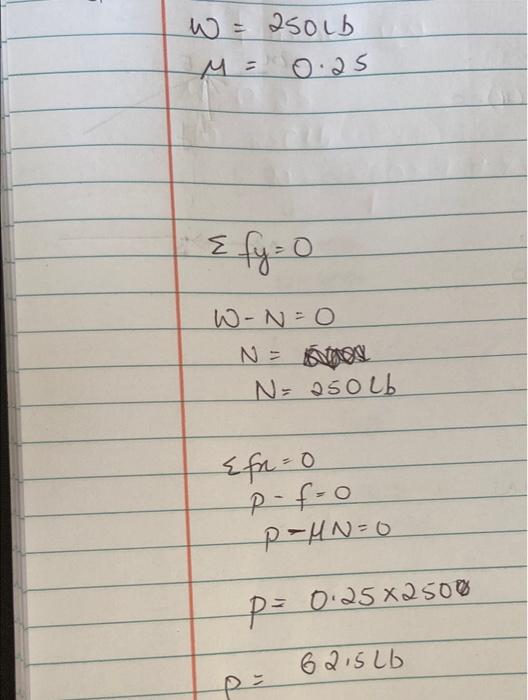 W = 250 Lb
μ = 0.25
Σ fy = 0
W - N = 0
N =
N = 250 Lb
Σ fx = 0
p - f = 0
p - μN = 0
p = 0.25 × 250
p = 62.5 Lb